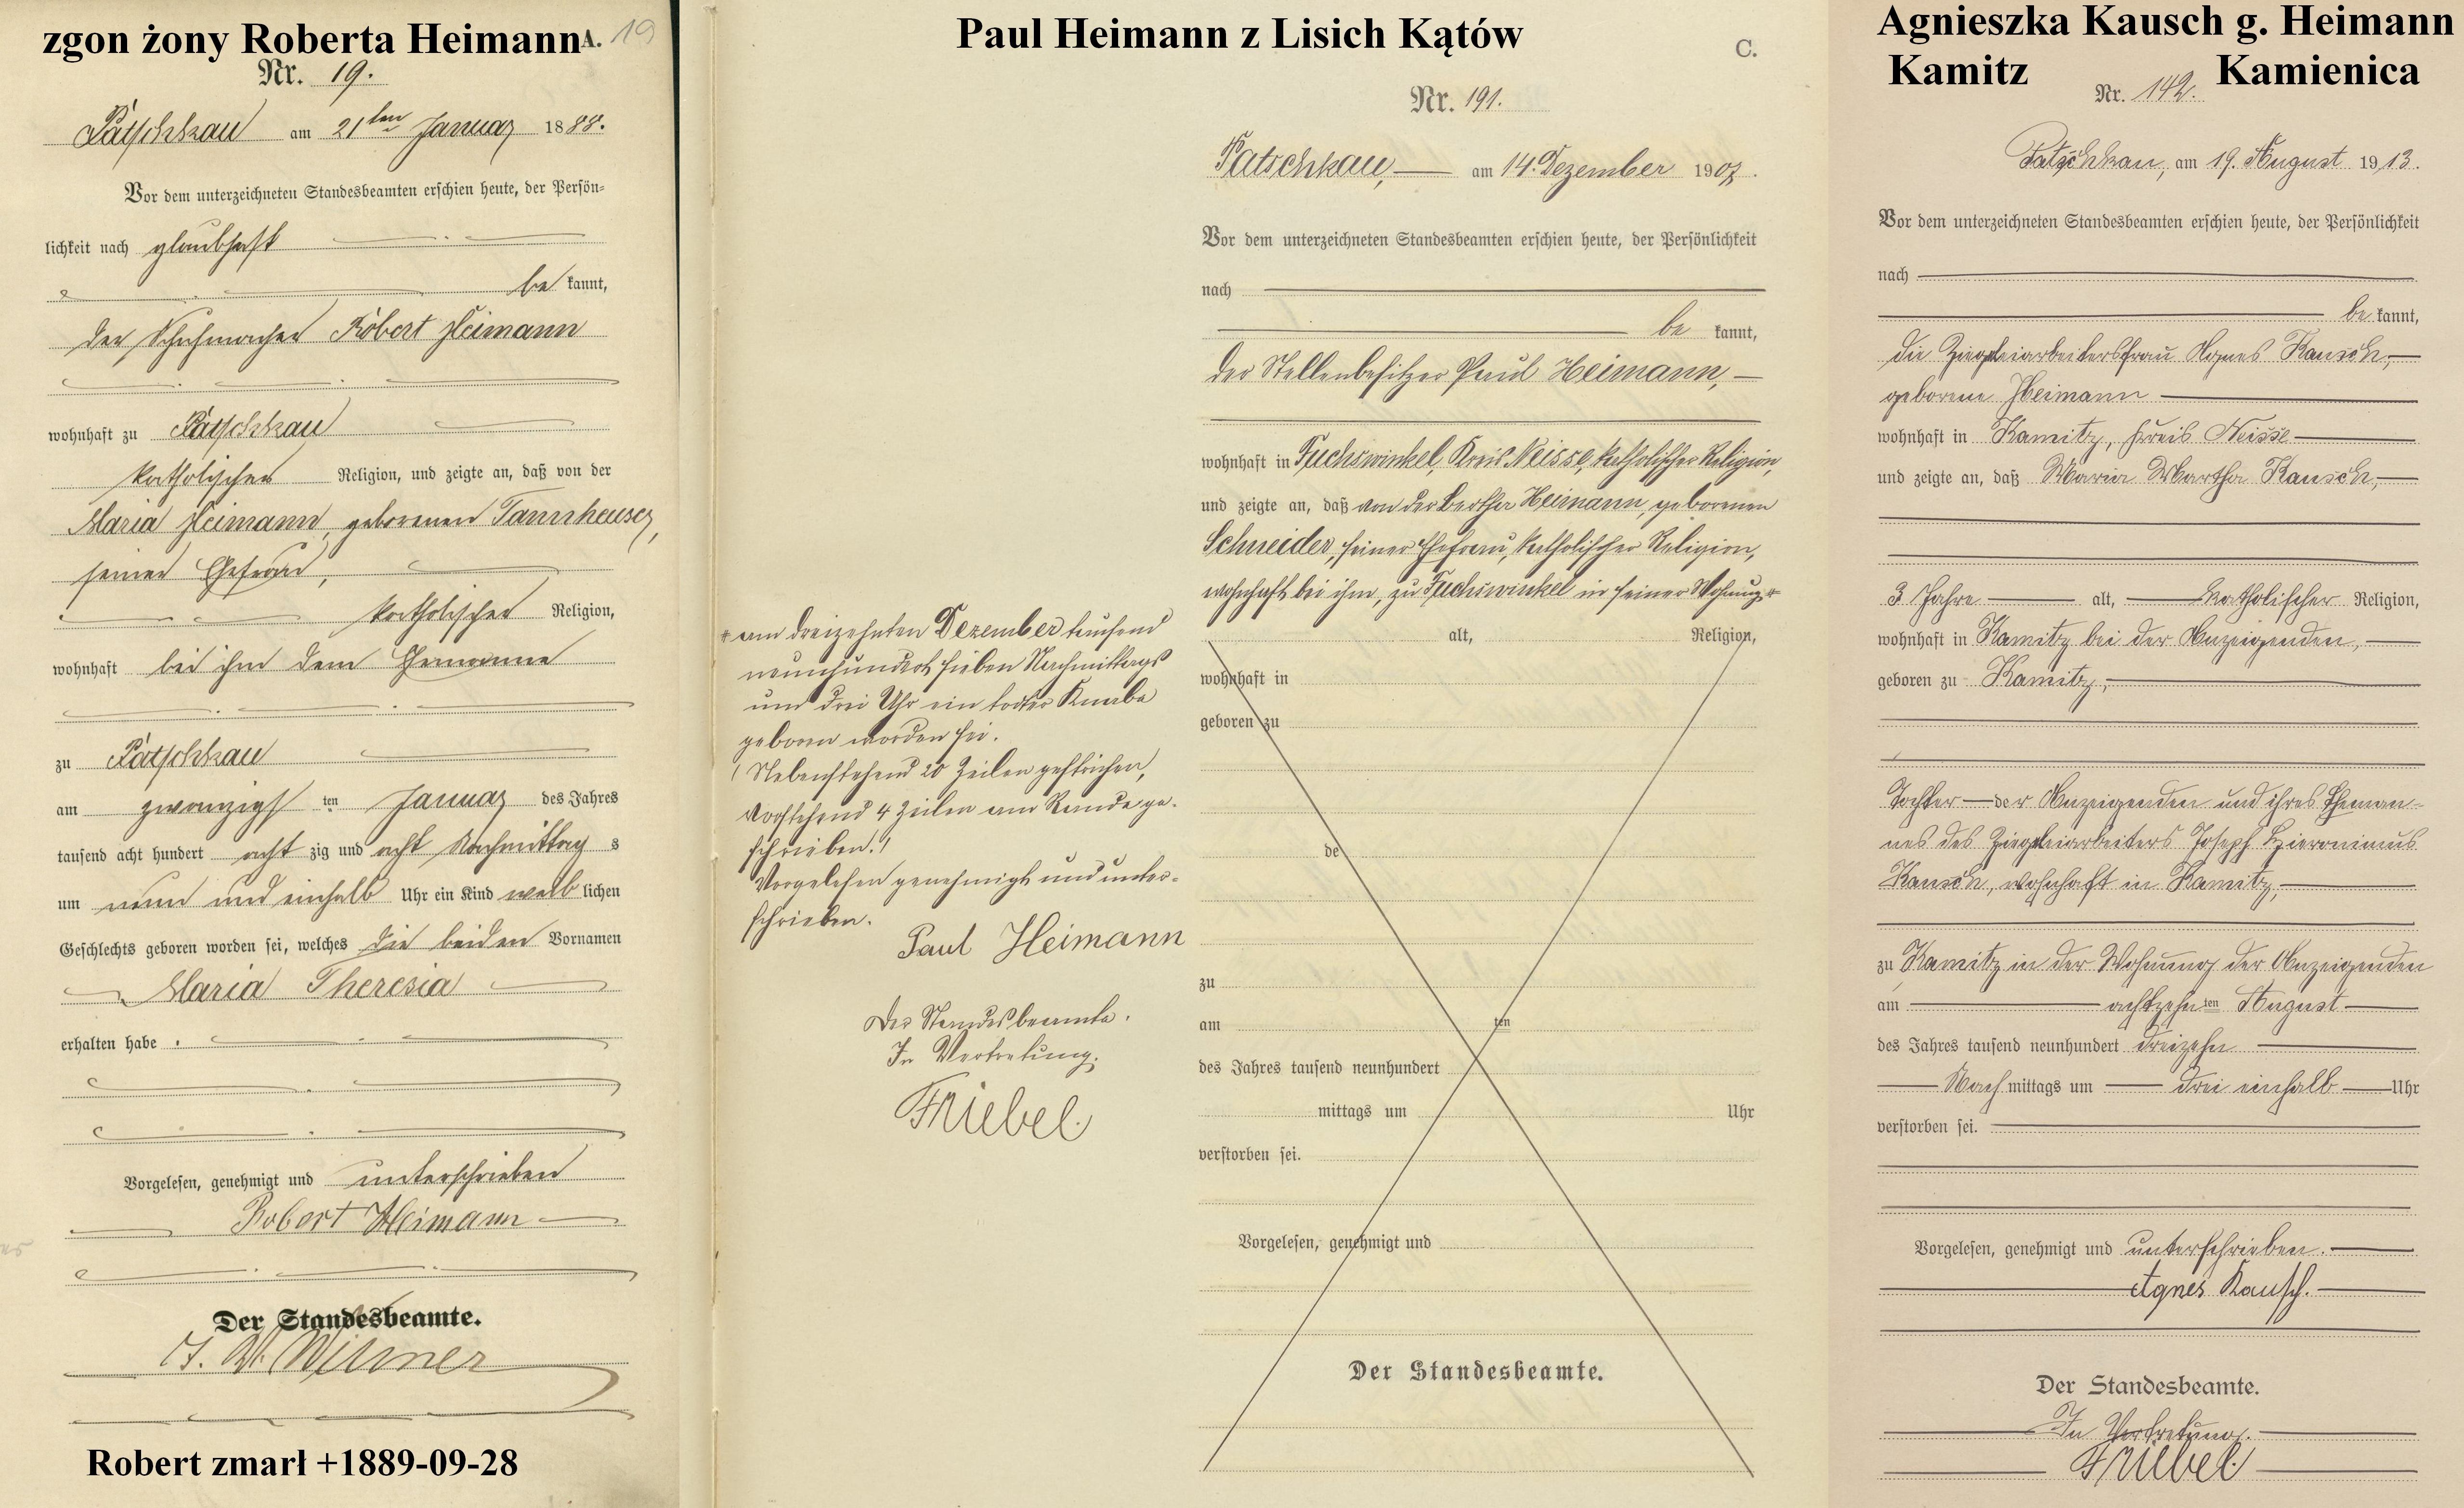 zgon żony Roberta Heimann A. 19
Nr. 19.
Patschkau am 21ten Januar 1888.
Vor dem unterzeichneten Standesbeamten erschien heute, der Persön-
lichkeit nach glaubhaft
be kannt,
der Schuhmacher Robert Heimann
wohnhaft zu Patschkau
katholischer Religion, und zeigte an, daß von der
Maria Heimann, geborenen Tannheuser,
seiner Ehefrau,
katholischer Religion,
wohnhaft bei ihm dem Ehemanne
zu Patschkau
am zwanzigst ten Januar des Jahres
tausend acht hundert acht zig und acht Nachmittag s
um neun und einhalb Uhr ein Kind weib lichen
Geschlechts geboren worden sei, welches die beiden Vornamen
Maria Theresia
erhalten habe .
Vorgelesen, genehmigt und unterschrieben
Robert Heimann
Der Standesbeamte.
Robert zmarł +1889-09-28
Paul Heimann z Lisich Kątów
C.
Nr. 191.
Patschkau, am 14. Dezember 1907.
Vor dem unterzeichneten Standesbeamten erschien heute, der Persönlichkeit
nach
be kannt,
der Stellenbesitzer Paul Heimann,
wohnhaft in Fuchswinkel, Kreis Neisse, katholischer Religion,
und zeigte an, daß von der Bertha Heimann, geborenen
Schneider, seiner Ehefrau, katholischer Religion,
wohnhaft bei ihm, zu Fuchswinkel in seiner Wohnung
am dreizehnten Dezember tausend
neunhundert sieben Nachmittags
um drei Uhr ein toter Knabe
geboren worden sei.
Nebenstehend 20 Zeilen gestrichen,
Vorstehend 4 Zeilen am Rande ge-
schrieben.
Vorgelesen genehmigt und unter-
schrieben.
Paul Heimann
Der Standesbeamte.
In Vertretung.
Friebel
alt, Religion,
wohnhaft in
geboren zu
de
zu
am ten
des Jahres tausend neunhundert
mittags um Uhr
verstorben sei.
Vorgelesen, genehmigt und
Der Standesbeamte.
Agnieszka Kausch g. Heimann
Kamitz Kamienica
Nr. 142.
Patschkau, am 19. August 1913.
Vor dem unterzeichneten Standesbeamten erschien heute, der Persönlichkeit
nach
be kannt,
die Ziegeleiarbeitersfrau Agnes Kausch,
geborene Heimann
wohnhaft in Kamitz, Kreis Neisse
und zeigte an, daß Maria Martha Kausch,
3 Jahre alt, katholischer Religion,
wohnhaft in Kamitz bei der Anzeigenden,
geboren zu Kamitz,
Tochter der Anzeigenden und ihres Eheman-
nes des Ziegeleiarbeiters Joseph Hieronimus
Kausch, wohnhaft in Kamitz,
zu Kamitz in der Wohnung der Anzeigenden
am achtzehn ten August
des Jahres tausend neunhundert dreizehn
Nach mittags um drei einhalb Uhr
verstorben sei.
Vorgelesen, genehmigt und unterschrieben.
Agnes Kausch.
Der Standesbeamte.
In Vertretung.
Friebel